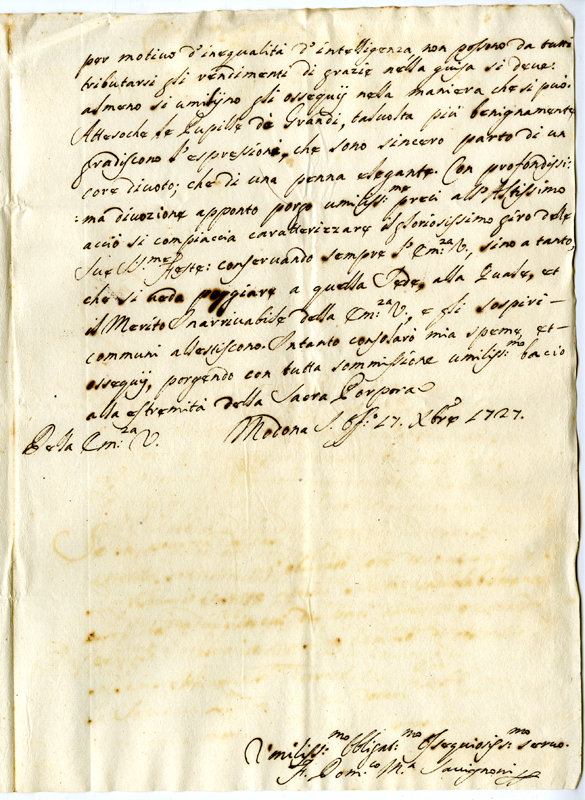 per motivo d'inequalità d'intelligenza non posono da tutti
tributarsi gli rendimenti di grazie nella guisa si deve:
almeno si umilijno gli ossequij nella maniera che si può.
Attesoche le Pupille de Grandi, talvolta più benignamente
gradiscono l'espressioni, che sono sincero parto di un
core divoto; che di una penna elegante. Con profondissi:
:ma divozione apponto porgo umiliss:me preci all'Altissimo
acciò si compiaccia caratterizzare il gloriosissimo giro delle
Sue S:me Feste: conservando sempre l'Em:za V., sino a tanto,
che si veda poggiare a quella Sede, alla Quale, et
il Merito Inarrivabile della Em:za V., e gli sospiri
communi allestiscono. Intanto consolarò mia speme, et
ossequij, porgendo con tutta sommissione umiliss:mo bacio
alla estremità della Sacra Porpora
Della Em:za V. Modona S. Off: 17. Xbre 1727.
Umiliss:mo Obligat:mo Ossequiosiss:mo servo.
F. Dom:co M.a Savignoni